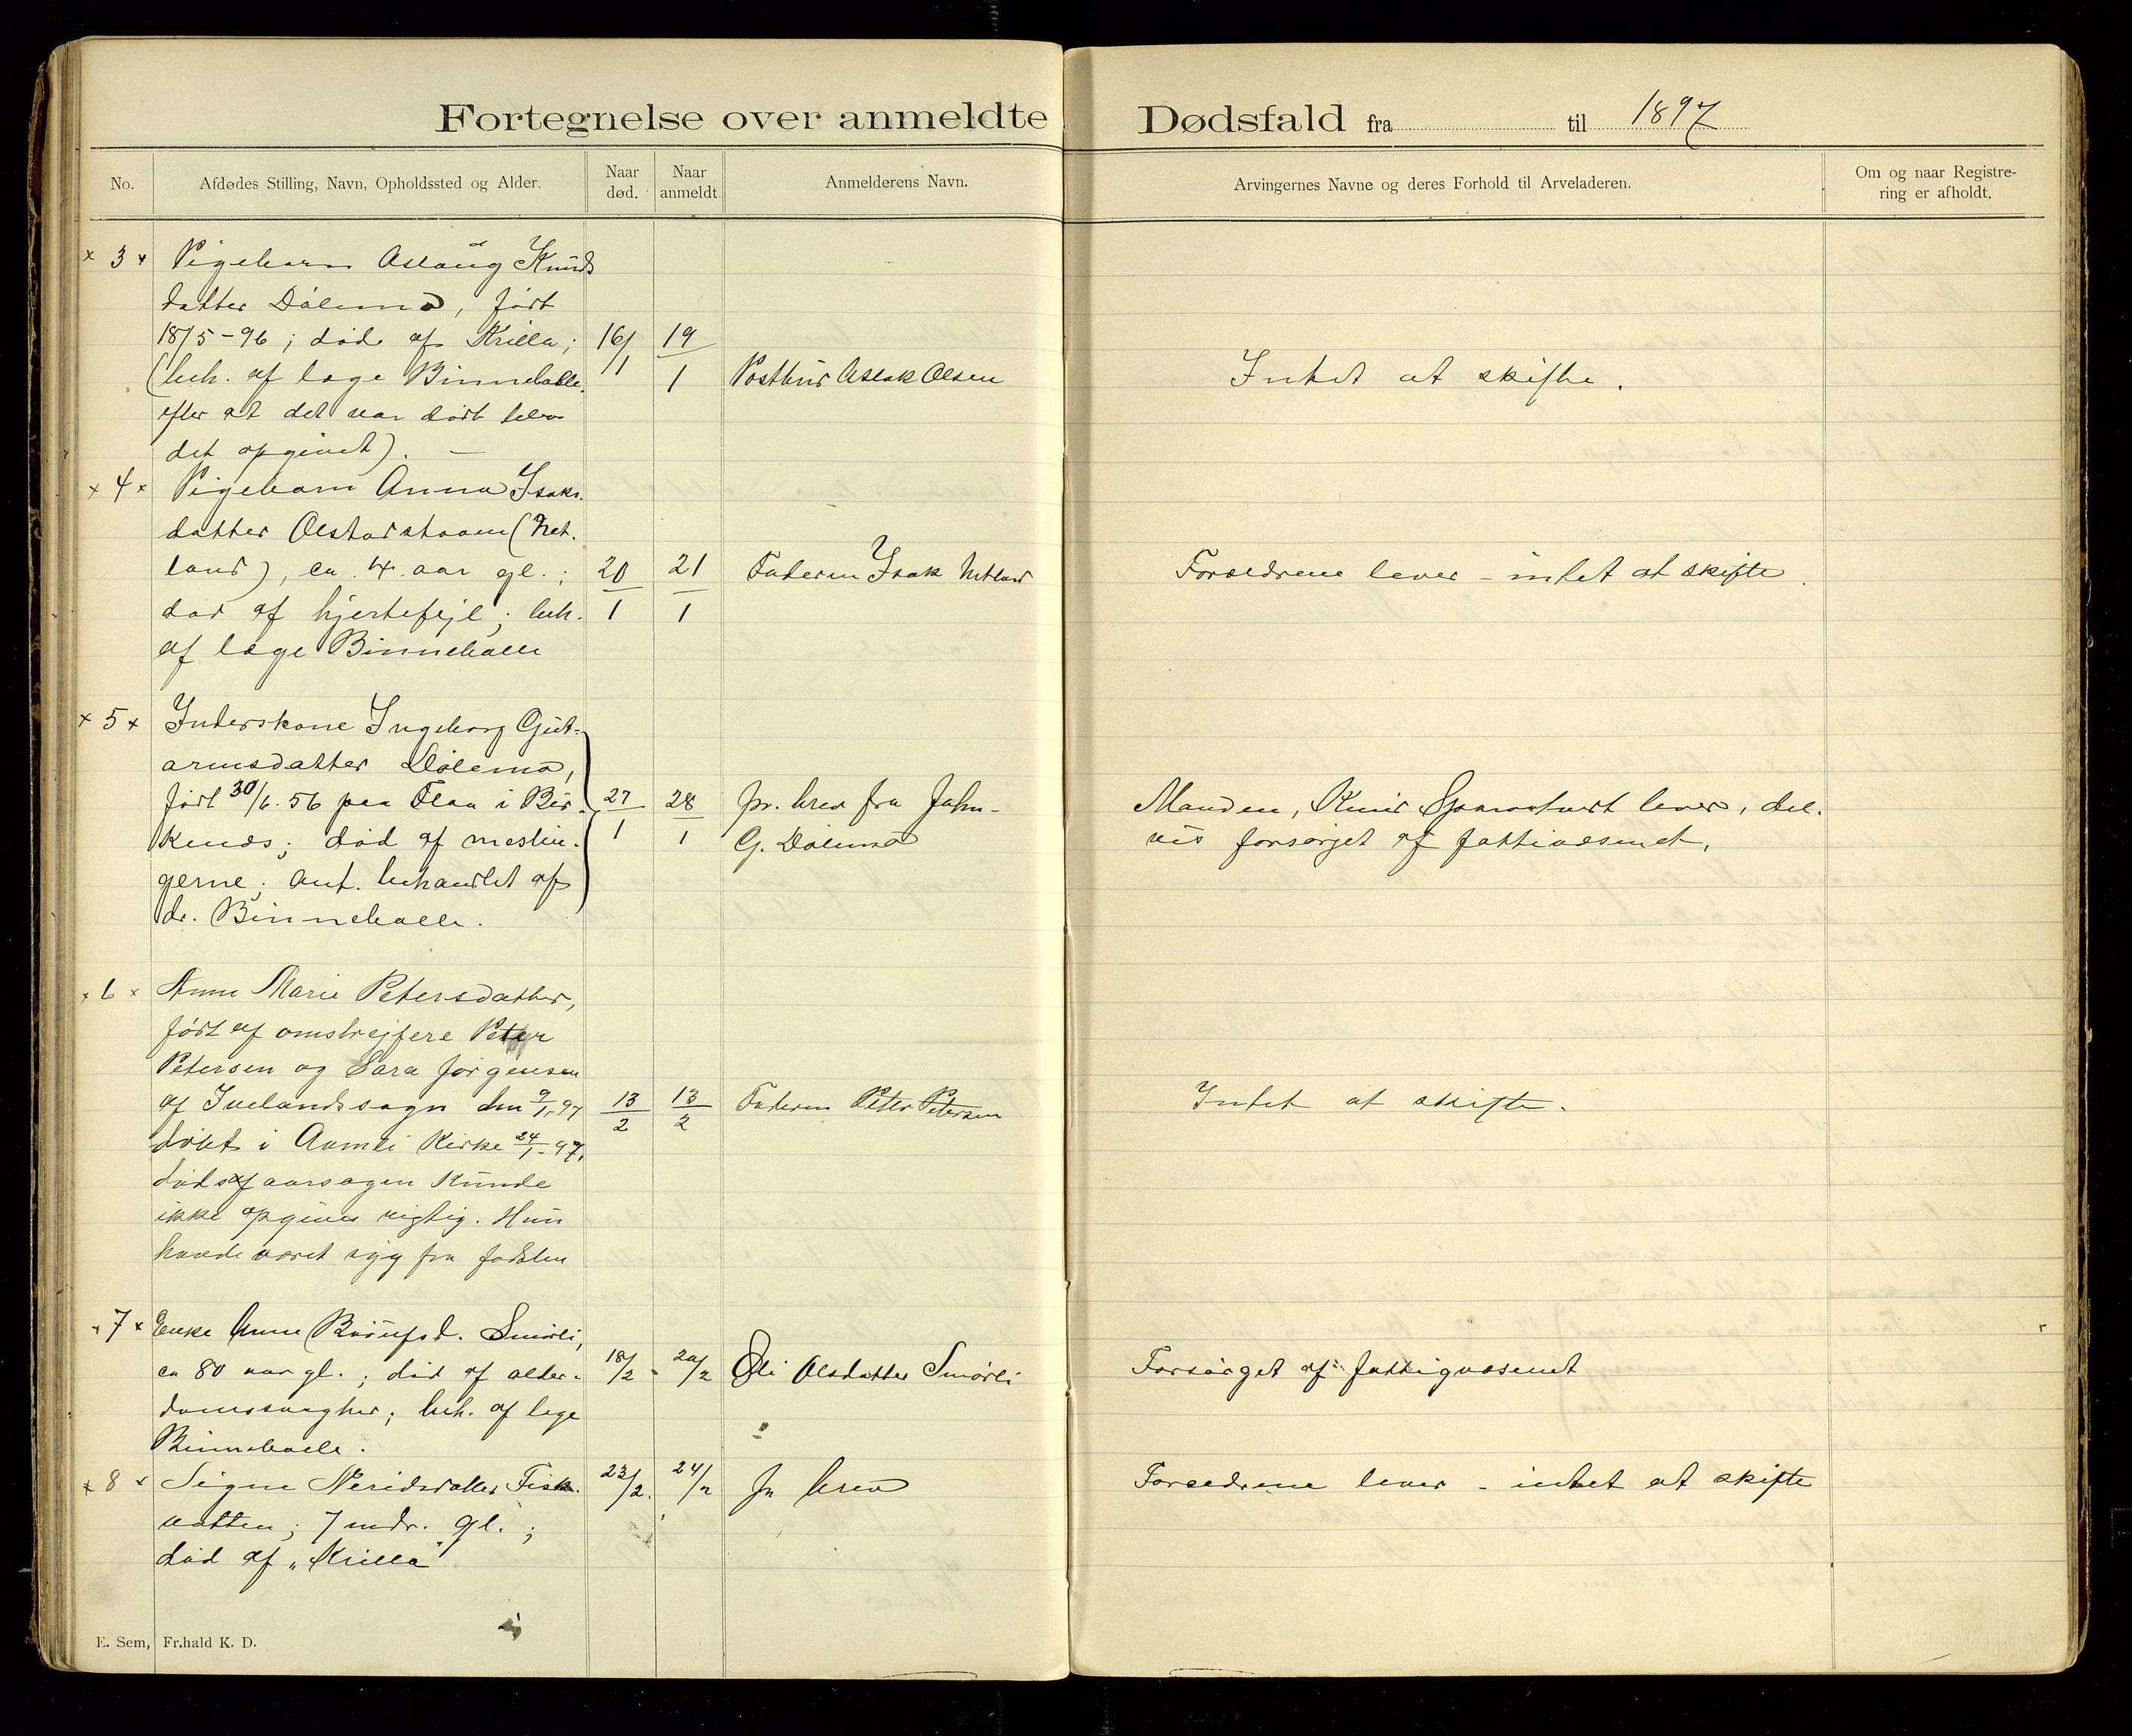 Fortegnelse over anmeldte Dødsfald fra til 1897
No.
Afdødes Stilling, Navn, Opholdssted og Alder.
Naar død.
Naar anmeldt
Anmelderens Navn.
Arvingernes Navne og deres Forhold til Arveladeren.
Om og naar Registre-
ring er afholdt.
× 3 × Pigebarn Aslaug Knuds
datter Dølemo, født
18/5-96; død af Krilla; 16/1 19/1
(beh. af læge Binneballe Postbud Aslak Olsen Intet at skifte.
efter at det var dødt blev
det opgivet). —
× 4 × Pigebarn Anna Isaks.
datter Olstadstoam (Net.
land), ca. 4 aar gl.; 20/1 21/1 Faderen Isak Netland Forældrene lever - intet at skifte.
død af hjertefejl; beh.
af læge Binneballe
× 5 × Inderskone Ingeborg Gut-
ormsdatter Dølemo,
født 30/6.56 paa Flaa i Bir- 27/1 28/1 pr. brev fra John Manden, Knud lever, del.
kenæs; død af meslin- G. Dølemo vis forsørget af fattigvæsenet.
gerne; ant. behandlet af
dr. Binneballe.
× 6 × Anne Marie Petersdatter,
født af omstrejfere Peter
Petersen og Sara Jørgensen
af Ivelands sogn den 9/1-97 13/2 13/2 Faderen Peter Petersen Intet at skifte.
døbt i Aamli Kirke 24/1-97.
dødsaarsagen kunde
ikke opgives rigtig. Hun
havde været syg fra fødslen
× 7 × Enke Anne Brøufsd. Smørli,
ca 80 aar gl.; død af alder- 18/2 - 20/2 Oli Olsdatter Smørli Forsørget af fattigvæsenet
domssvaghed; beh. af læge
Binneballe.
× 8 × Signe Neridsdatter Fisk. 23/2. 24/2 pr brev Forældrene lever - intet at skifte
vatten; 7 mdr. gl.;
død af „Krilla"
E. Sem, Fr.hald K. D.